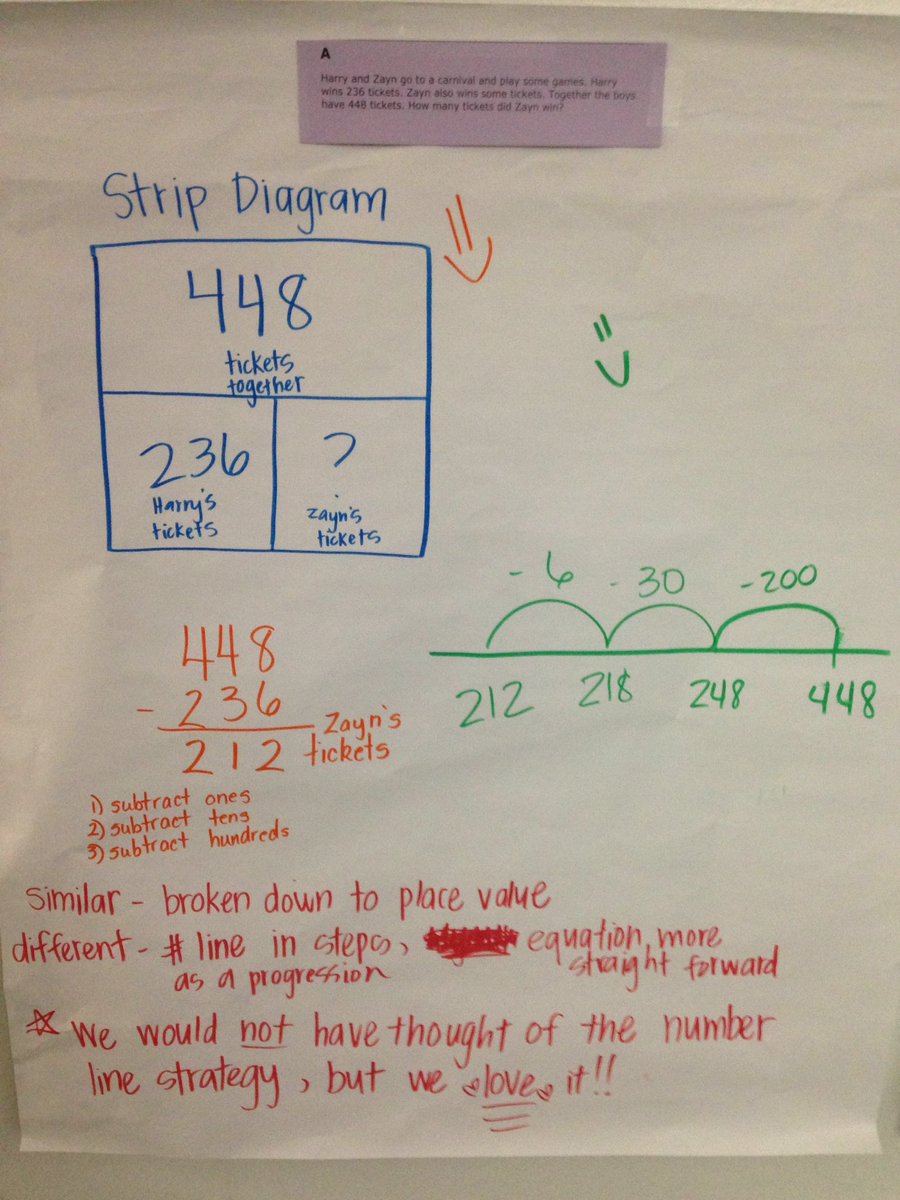 A
Harry and Zayn go to a carnival and play some games. Harry
wins 236 tickets. Zayn also wins some tickets. Together the boys
have 448 tickets. How many tickets did Zayn win?
Strip Diagram
448
tickets
together
236
Harry's
tickets
?
Zayn's
tickets
- 6 - 30 - 200
212 218 248 448
448
- 236
212
Zayn's
tickets
1) subtract ones
2) subtract tens
3) subtract hundreds
similar - broken down to place value
different - # line in steps, equation, more
as a progression straight forward
☆ We would not have thought of the number
line strategy, but we love it!!